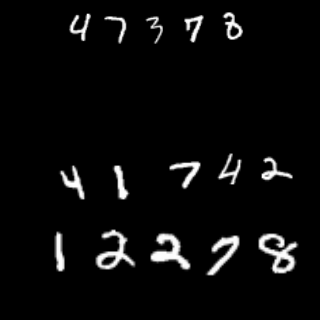 4 7 3 7 8
4 1 7 4 2
1 2 2 7 8